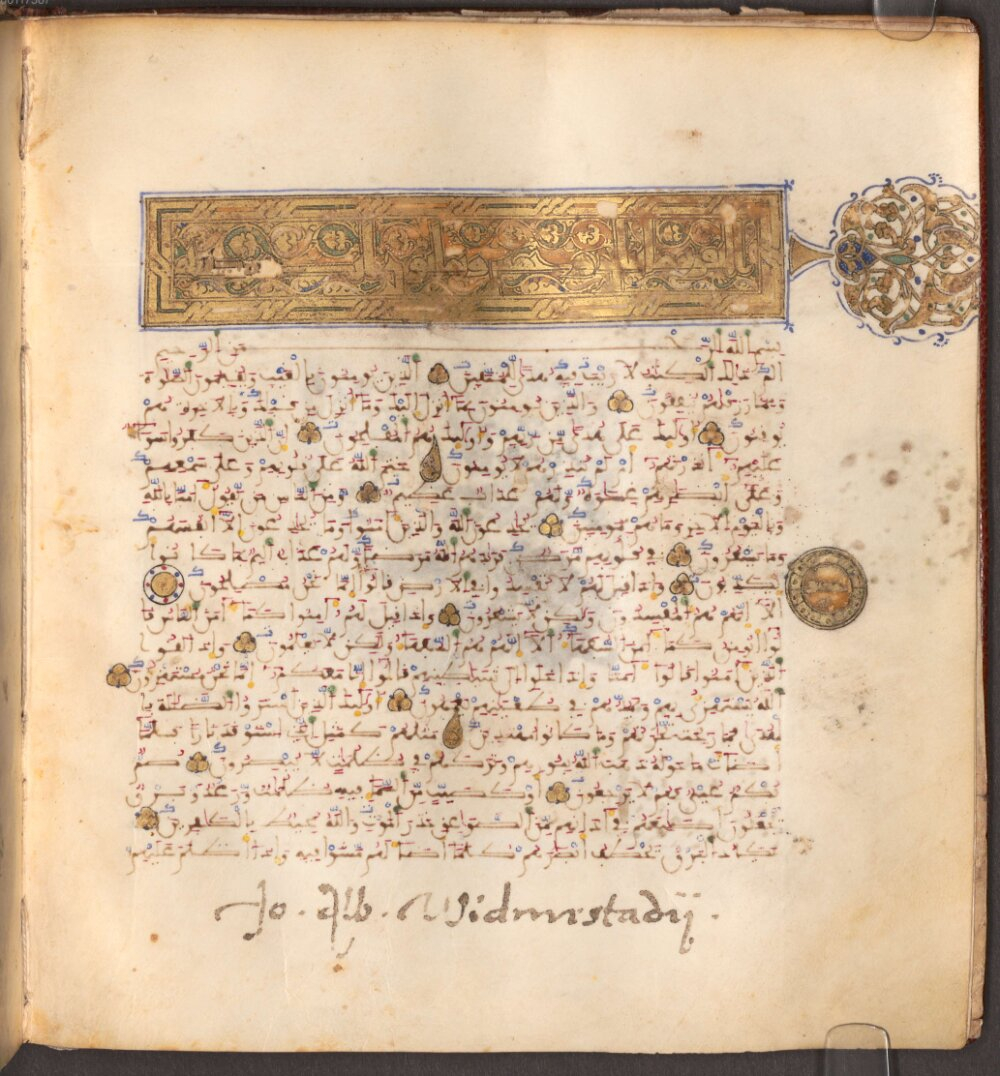 بسم الله الرحمن الرحيم
الم ذلك الكتب لا ريب فيه هدى للمتقين الذين يومنون بالغيب ويقيمون الصلوة
ومما رزقنهم ينفقون والذين يومنون بما انزل اليك وما انزل من قبلك وبالاخرة هم
يوقنون اوليك على هدى من ربهم واوليك هم المفلحون ان الذين كفروا سوا
عليهم انذرتهم ام لم تنذرهم لا يومنون ختم الله على قلوبهم وعلى سمعهم
وعلى ابصرهم غشوة ولهم عذاب عظيم ومن الناس من يقول امنا بالله
وباليوم الاخر وما هم بمومنين يخدعون الله والذين امنوا وما يخدعون الا انفسهم
وما يشعرون في قلوبهم مرض فزادهم الله مرضا ولهم عذاب اليم بما كانوا
يكذبون واذا قيل لهم لا تفسدوا في الارض قالوا انما نحن مصلحون
الا انهم هم المفسدون ولكن لا يشعرون واذا قيل لهم امنوا كما امن الناس قا
لوا انومن كما امن السفها الا انهم هم السفها ولكن لا يعلمون واذا لقوا
الذين امنوا قالوا امنا واذا خلوا الى شيطينهم قالوا انا معكم انما نحن مستهزون
الله يستهزي بهم ويمدهم في طغينهم يعمهون اوليك الذين اشتروا الضللة با
لهدى فما ربحت تجرتهم وما كانوا مهتدين مثلهم كمثل الذي استوقد نارا فلما
اضات ما حوله ذهب الله بنورهم وتركهم في ظلمت لا يبصرون صم
بكم عمي فهم لا يرجعون او كصيب من السما فيه ظلمت ورعد وبرق
يجعلون اصبعهم في اذانهم من الصوعق حذر الموت والله محيط بالكفرين
يكاد البرق يخطف ابصرهم كلما اضا لهم مشوا فيه واذا اظلم عليهم
Jo. Alb. Widmestadij.